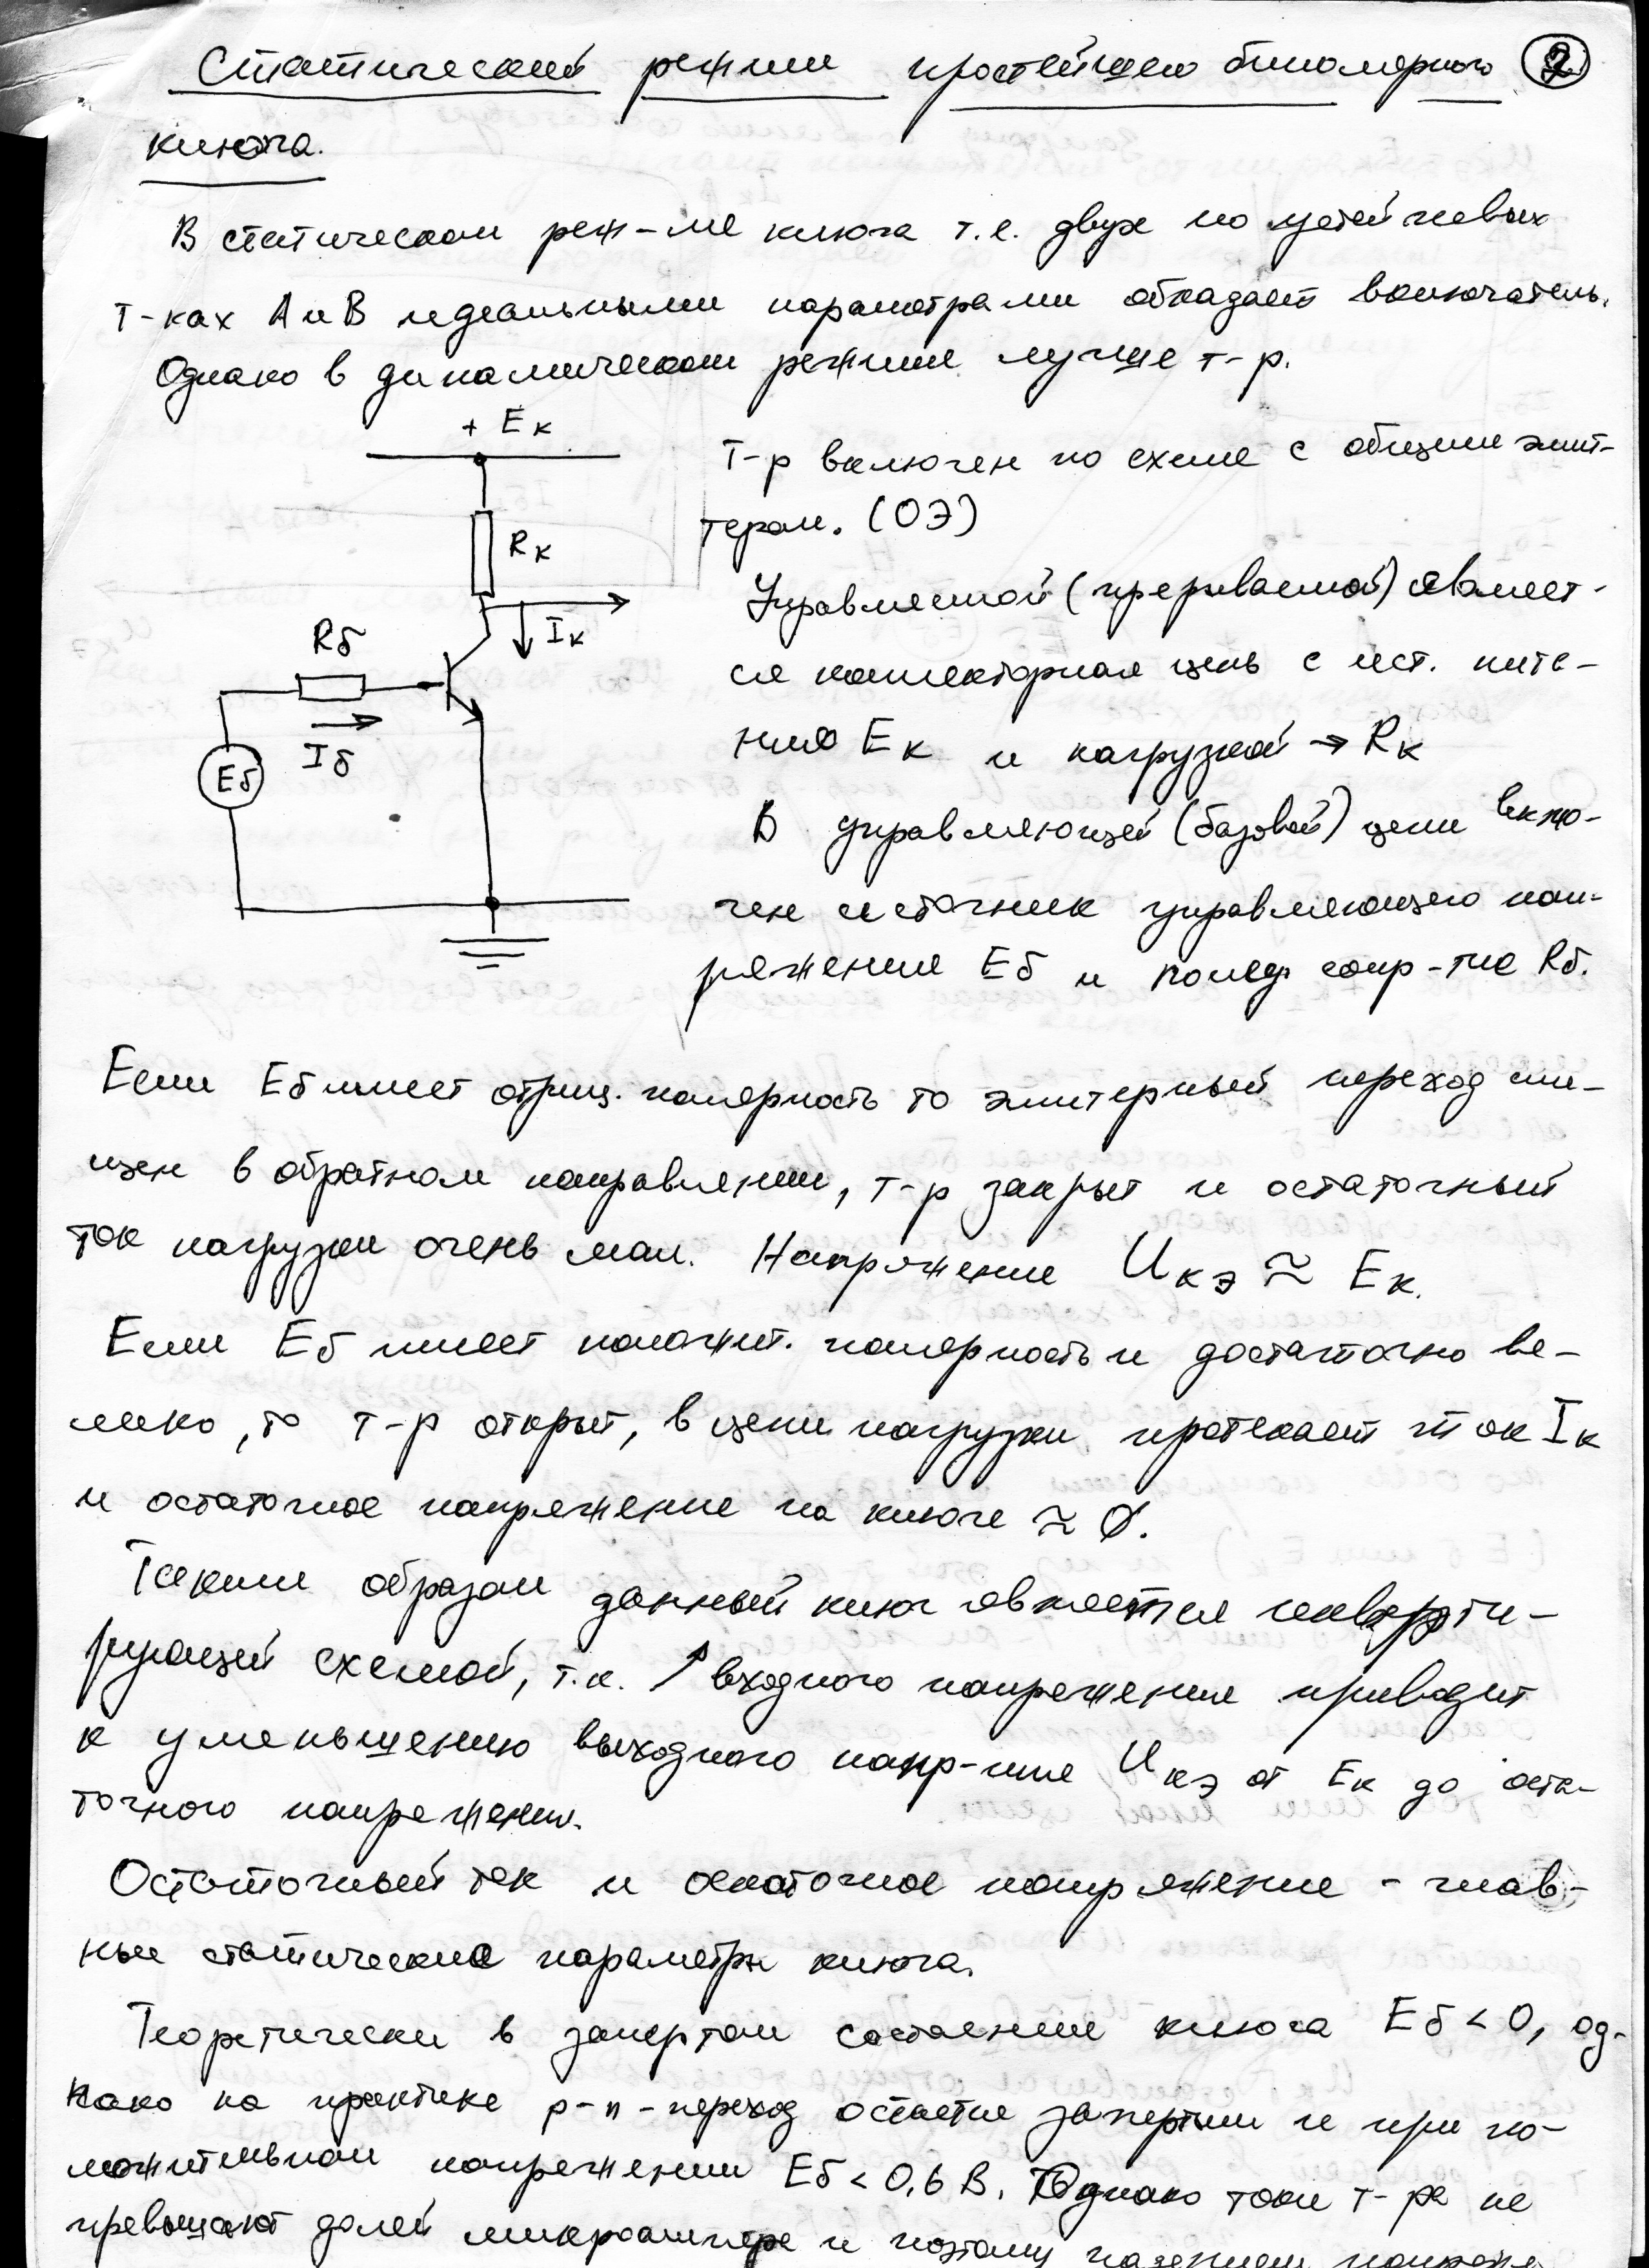 Статический режим простейшего биполярного 2
ключа.
В статическом реж-ме ключа т.е. двух по устойчивых
т-ках А и В идеальными параметрами обладает включатель.
Однако в динамическом режиме лучше т-р.
+ Ек
Rк
Iк
Rб
Iб
Еб
Т-р включен по схеме с общим эмит-
тером. (ОЭ)
Управляемой (прерываемой) являет-
ся коллекторная цепь с ист. пита-
ния Ек и нагрузкой → Rк
В управляющей (базовой) цепи вклю-
чен источник управляющего нап-
ряжения Еб и послед. сопр-тие Rб.
Если Еб имеет отриц. полярность то эмитерный переход сме-
щен в обратном направлении, т-р закрыт и остаточный
ток нагрузки очень мал. Напряжение Uкэ ≈ Ек.
Если Еб имеет положит. полярность и достаточно ве-
лико, то т-р открыт, в цепи нагрузки протекает ток Iк
и остаточное напряжение на ключе ≈ 0.
Таким образом данный ключ является инверти-
рующей схемой, т.к. ↑ входного напряжения приводит
к уменьшению выходного напр-ния Uкэ от Ек до оста-
точного напряжения.
Остаточный ток и остаточное напряжение - глав-
ные статические параметры ключа.
Теоретически в запертом состоянии ключа Еб < 0, од-
нако на практике p-n-переход остается запертым и при по-
ложительном напряжении Еб < 0,6 В. Однако токи т-ра не
превышают долей микроампера и поэтому падением напряж